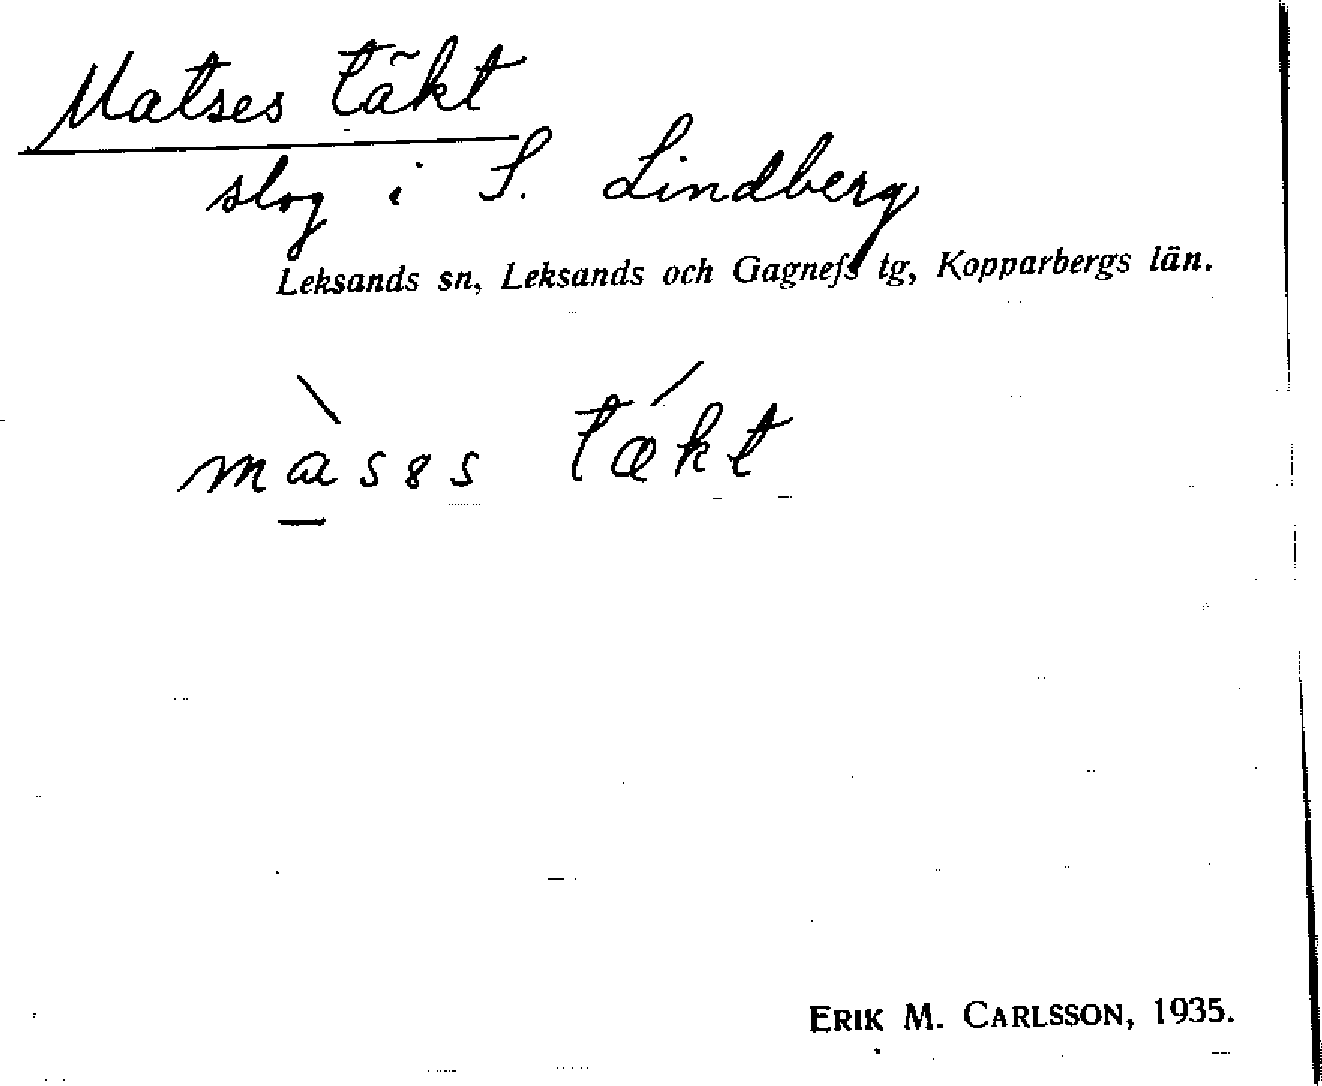 Matses täkt
slog i S. Lindberg
Leksands sn, Leksands och Gagnefs tg, Kopparbergs län.
màsɞs tǽkt
ERIK M. CARLSSON, 1935.